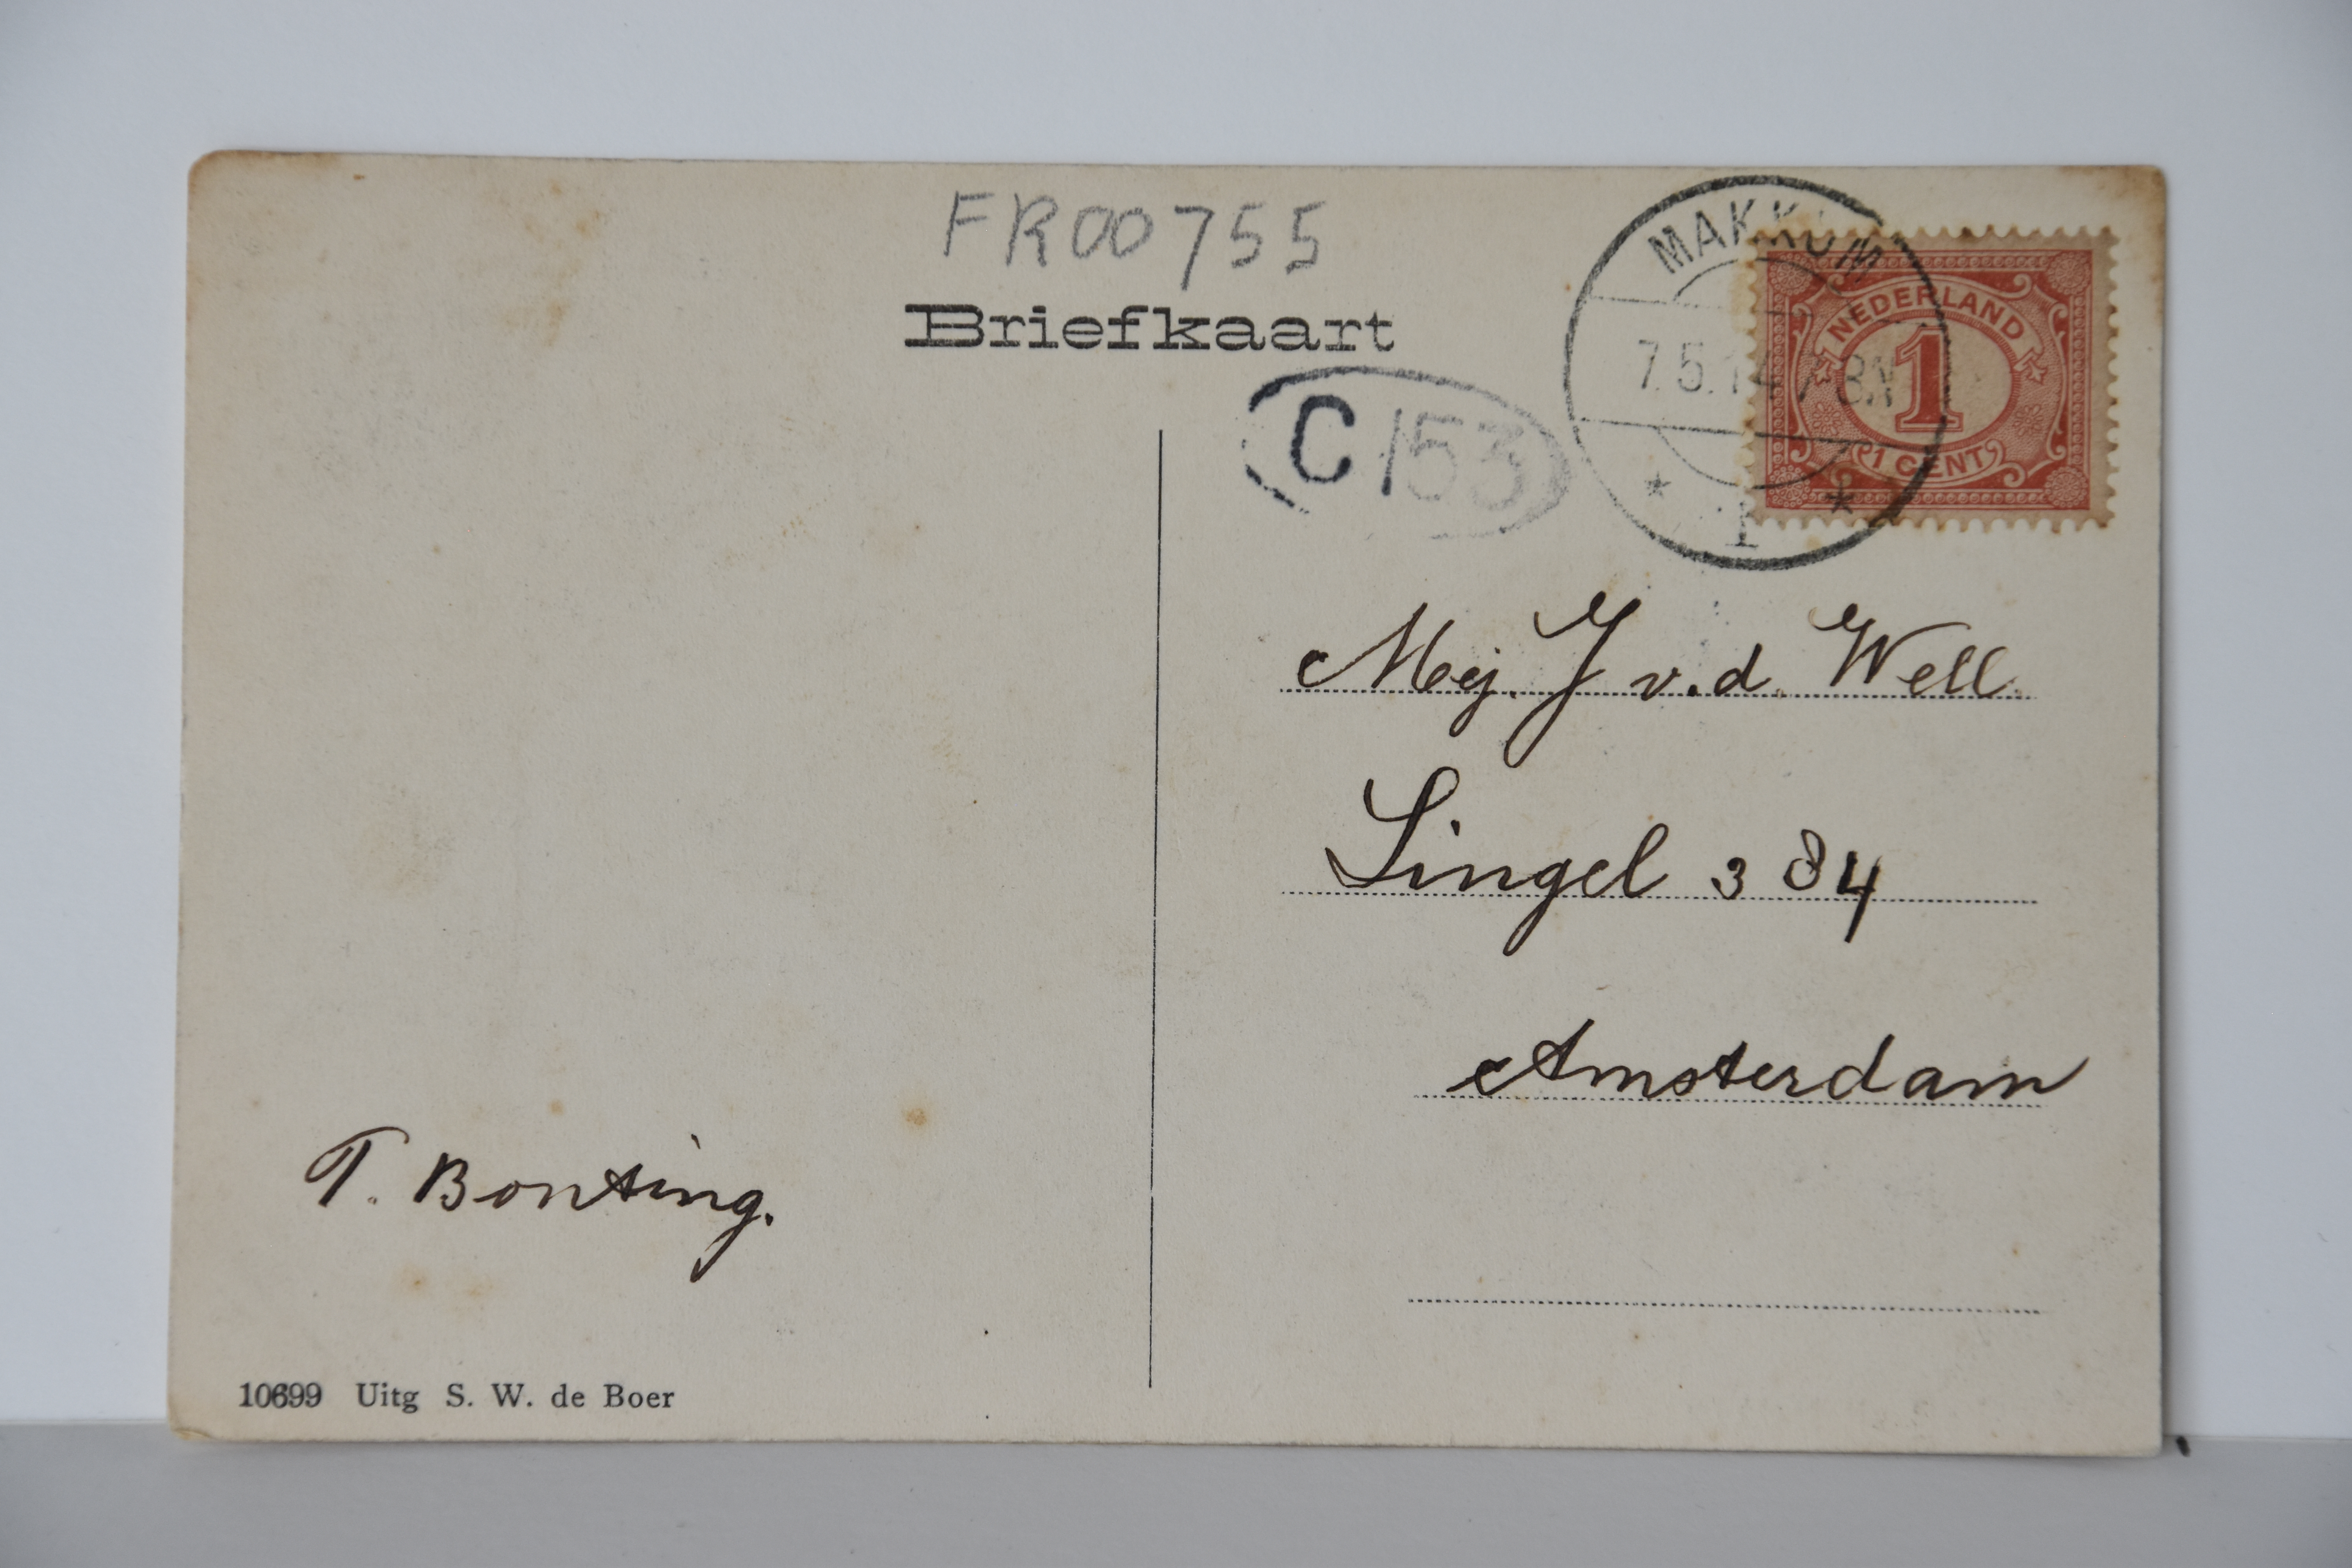 FR00755
Briefkaart
C 153
MAKKUM
7.5.14 7-8.N
1
NEDERLAND
1
1 CENT
Mej. J v.d. Well.
Singel 384
Amsterdam
T. Bonting.
10699 Uitg S. W. de Boer